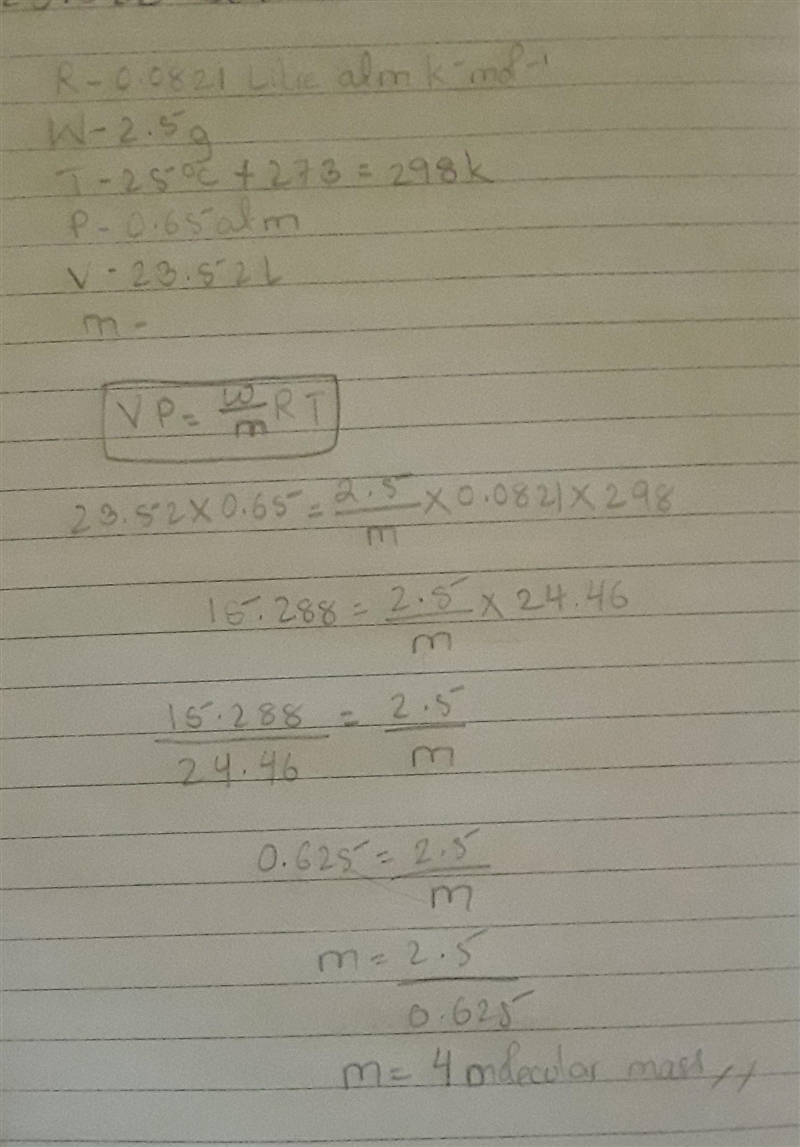 R - 0.0821 Litre atm k⁻ mol⁻¹
W - 2.5g
T - 25°C + 273 = 298k
P - 0.65 atm
V - 23.52L
m -
VP = w/m RT
23.52 × 0.65 = 2.5/m × 0.0821 × 298
15.288 = 2.5/m × 24.46
15.288/24.46 = 2.5/m
0.625 = 2.5/m
m = 2.5/0.625
m = 4 molecular mass //